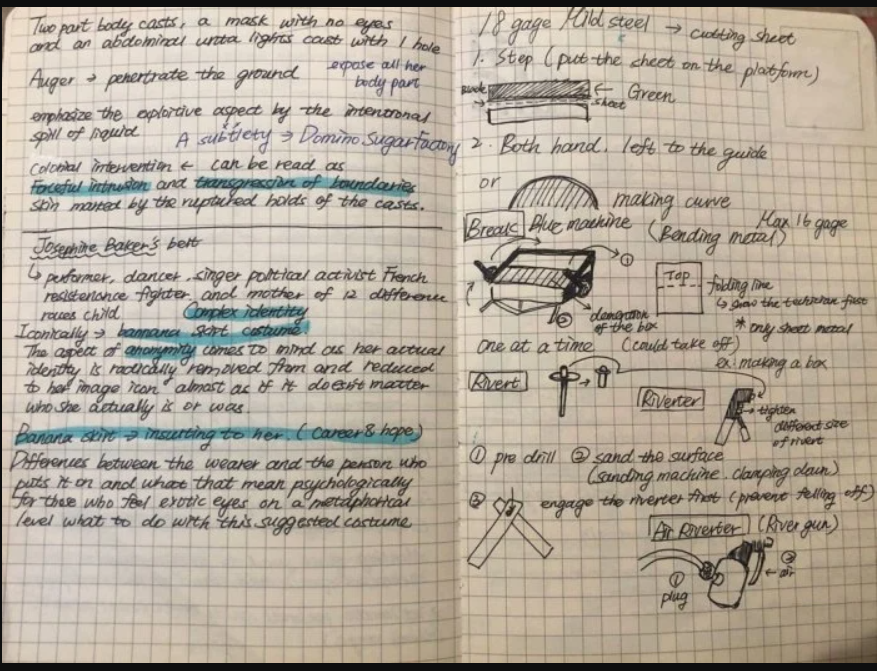 Two part body casts, a mask with no eyes
and an abdominal unta lights cast with 1 hole
Auger → penertrate the ground
expose all her
body part
emphasize the exploitive aspect by the intentional
spill of liquid
A subtlety → Domino.Sugar Factory
colonial intervention ← can be read as
forceful intrusion and transgression of boundaries
skin marred by the ruptured holds of the casts.
Josephine Baker's belt
↳ performer, dancer, singer political activist French
resistence fighter and mother of 12 difference
races child
Complex identity
Iconically → bannana skirt costume
The aspect of anonymity comes to mind as her actual
identity is radically removed from and reduced
to her image icon almost as if it doesn't matter
who she actually is or was.
Banana skirt → insulting to her. (Career & hope)
Differences between the wearer and the person who
puts it on and what that mean psychologically
for these who feel exotic eyes on a metaphorical
level what to do with this suggested costume
18 gage Mild steel → cutting sheet
1. Step (put the sheet on the platform)
← Green
sheet
2. Both hand, left to the guide
or making curve
Break Blue machine (Bending metal) Max 16 gage
①
Top
folding line
↳ show the technician fast
②
of the box
* only sheet metal
one at a time (could take off)
ex. making a box
Rivert
Riverter
→ tighten
different size
of rivert
① pre drill ② sand the surface
(sanding machine. clamping down)
③ engage the riverter first (prevent felling off)
Air Riverter (River gun)
①
plug
②
← air